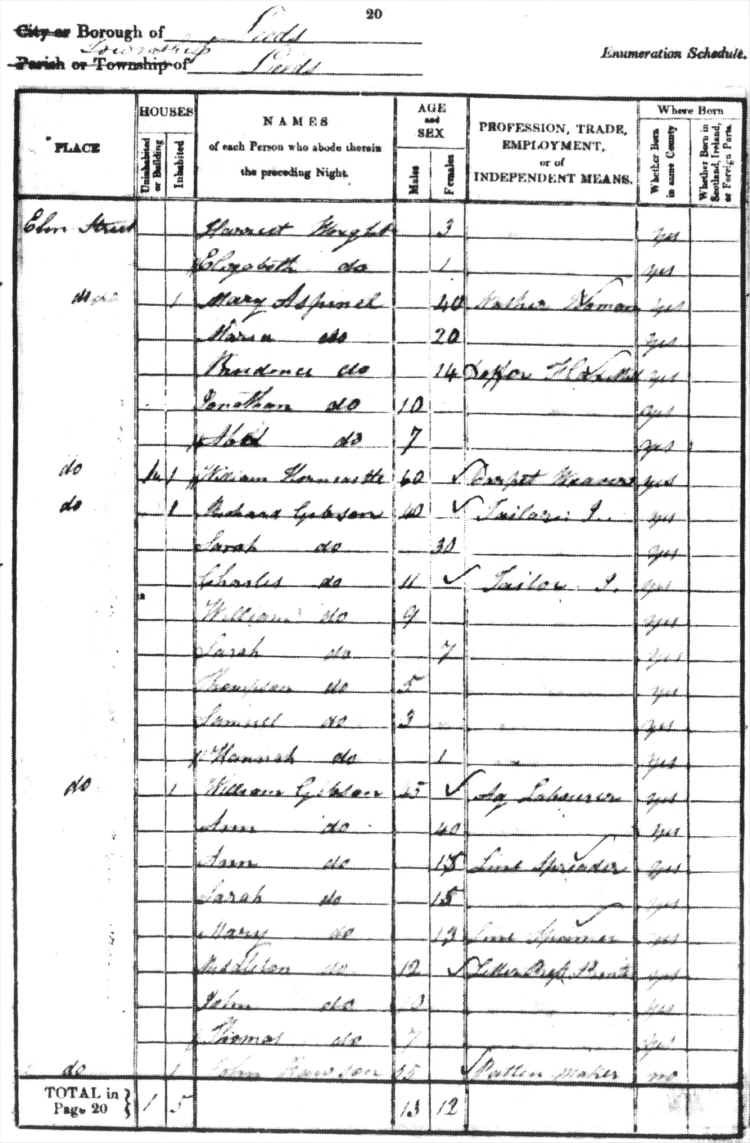 20
City or Borough of Leeds
Parish or Township of Leeds
Township
Enumeration Schedule.
PLACE
HOUSES
Uninhabited or Building
Inhabited
NAMES
of each Person who abode therein
the preceding Night.
AGE
and
SEX
Males
Females
PROFESSION, TRADE,
EMPLOYMENT,
or of
INDEPENDENT MEANS.
Where Born
Whether Born in same County
Whether Born in Scotland, Ireland, or Foreign Parts.
Elm Street Harriet Wright 3 yes
Elizabeth do 1 yes
do 1 Mary Aspinel 40 Washer Woman yes
Maria do 20 yes
Prudence do 14 yes
Jonathan do 10 yes
do 7 yes
do 1 William Horncastle 60 Carpet Weaver yes
do 1 Richard Gibson 40 Tailor J. yes
Sarah do 30 yes
Charles do 11 Tailor J. yes
William do 9 yes
Sarah do 7 yes
Thompson do 5 yes
Samuel do 3 yes
Hannah do 1 yes
do 1 William Gibson 45 Ag Labourer yes
Ann do 40 yes
Ann do 15 Line Spreader yes
Sarah do 15 yes
Mary do 13 Line Spinner yes
Middleton do 12 Letter Press Printer yes
John do yes
Thomas do 7 yes
do 1 John Rawson Patten Maker no
TOTAL in
Page 20 } 1 5 13 12